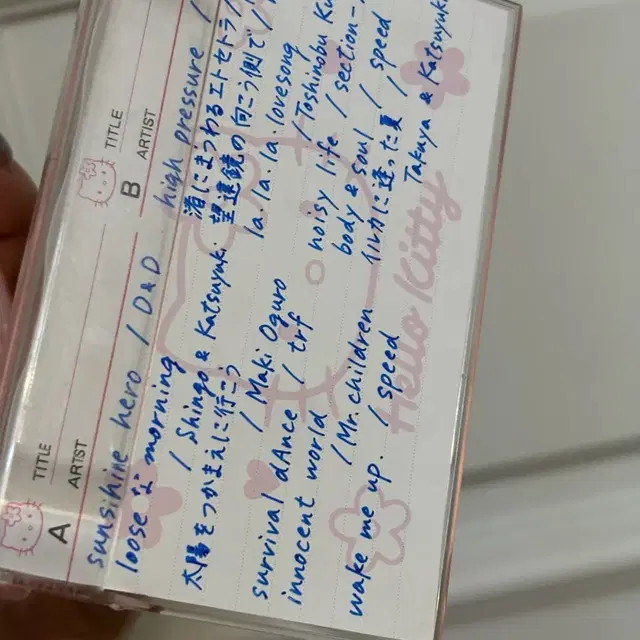 A
TITLE
ARTIST
sunshine hero / D&D
loose な morning
/ Shingo & Katsuyuki
太陽をつかまえに行こう
/ Maki Oguro
survival dAnce / trf
innocent world
/ Mr. children
wake me up. / speed
B
TITLE
ARTIST
high pressure /
渚にまつわるエトセトラ
望遠鏡の向こう側で /
la. la. la. lovesong
/ Toshinobu Ku
noisy life / section-
body & soul / speed
イルカに逢った夏 /
Takuya & Katsuyuki
Hello Kitty